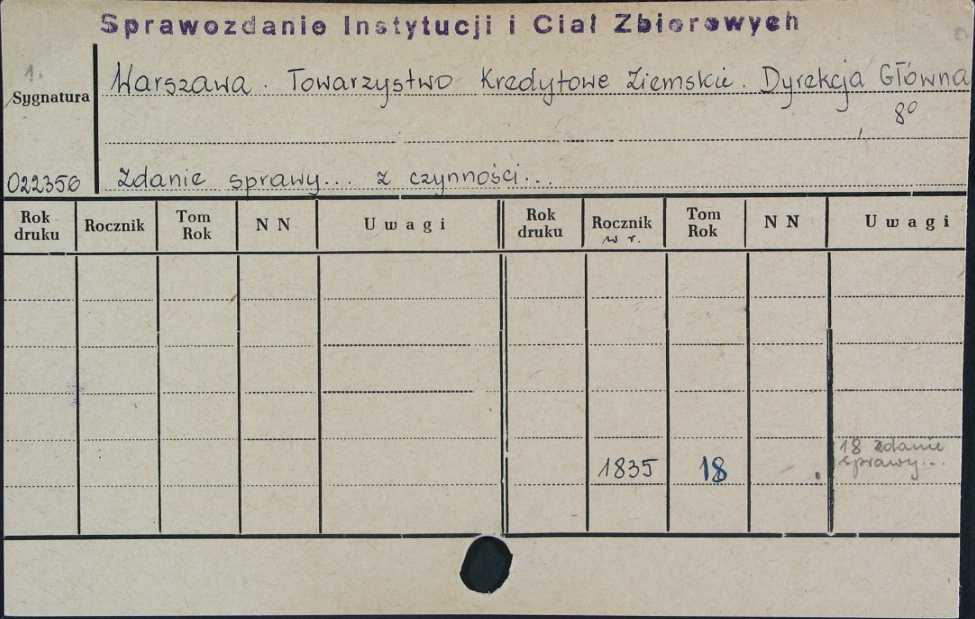 Sprawozdanie Instytucji i Ciał Zbiorowych
1.
Sygnatura
Warszawa. Towarzystwo Kredytowe Ziemskie. Dyrekcja Główna
8°
022356 Zdanie sprawy... z czynności...
Rok druku Rocznik Tom Rok N N Uwagi Rok druku Rocznik w r. Tom Rok N N Uwagi
1835 18 18 zdanie
sprawy...